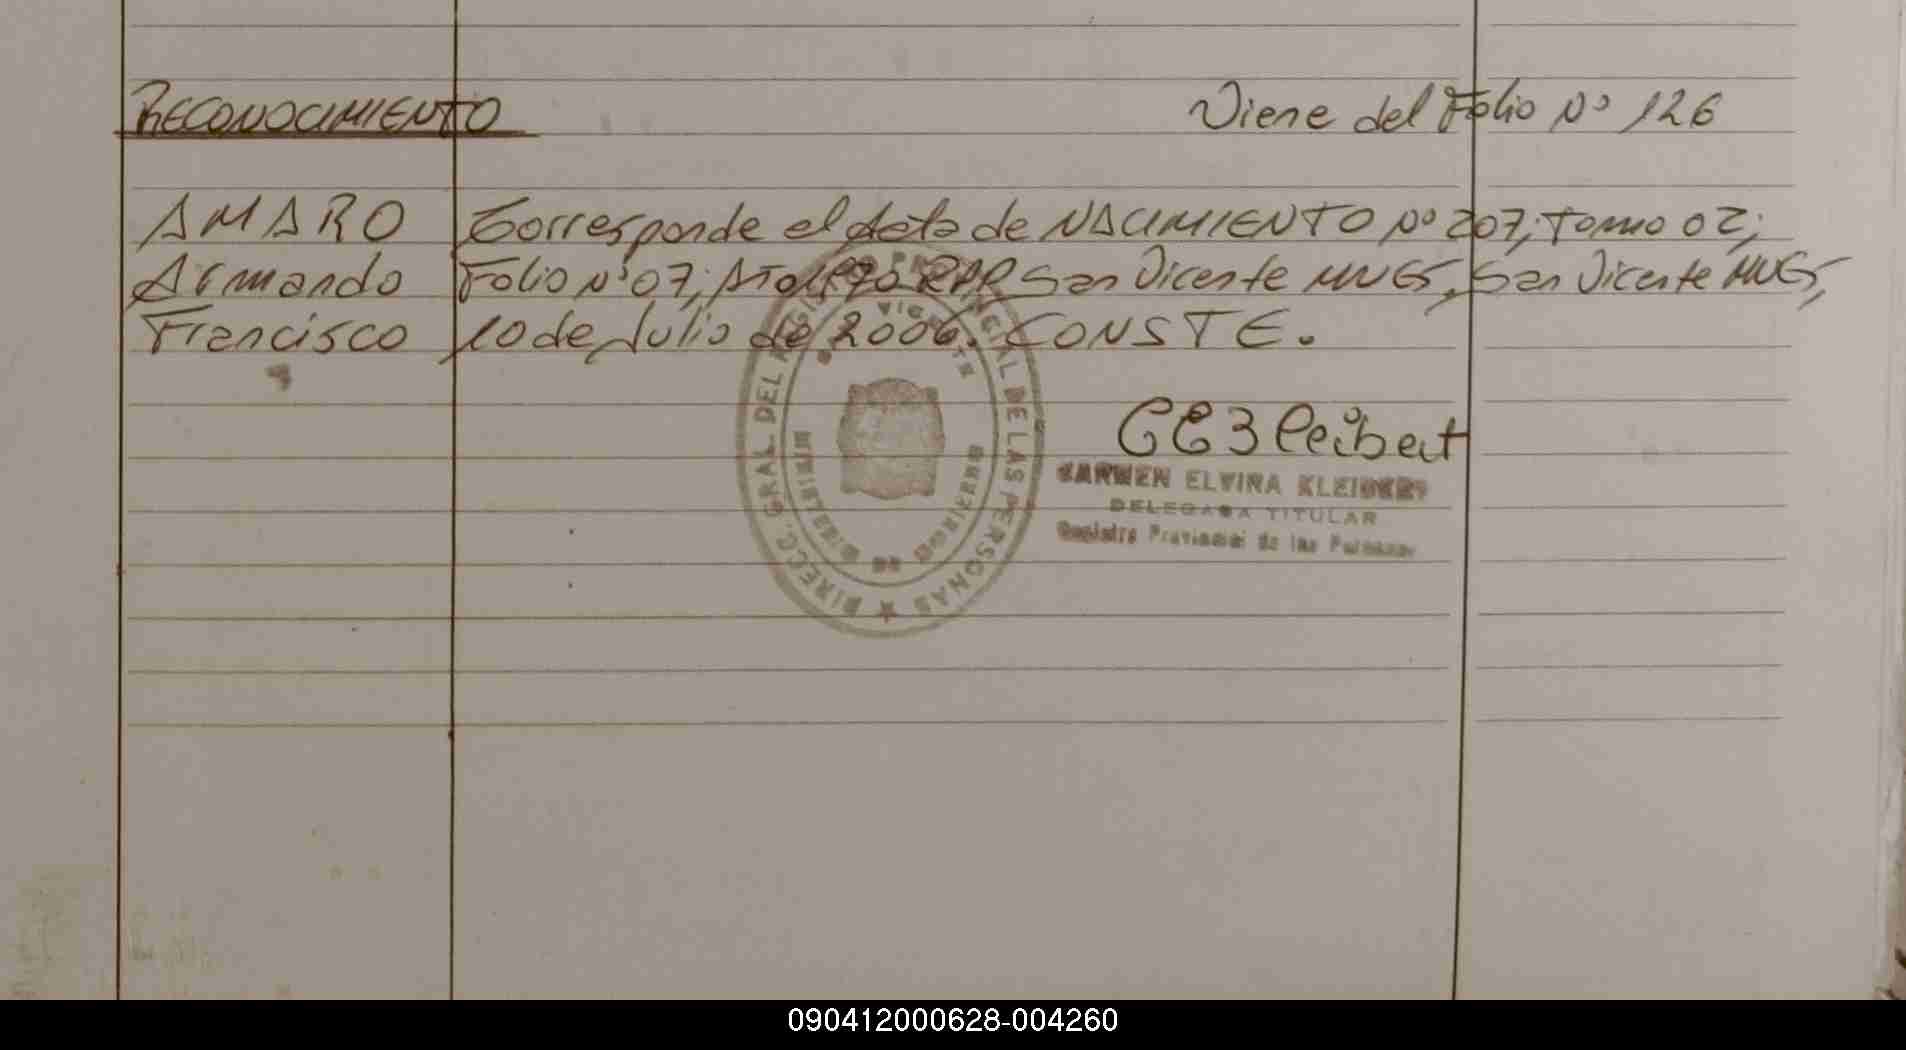 RECONOCIMIENTO
Viene del Folio Nº 126
AMARO
Armando
Francisco
Corresponde el Acta de NACIMIENTO Nº 207; Tomo 02;
Folio Nº 07; RPP San Vicente MNES, San Vicente MNES,
10 de Julio de 2006. CONSTE.
CARMEN ELVIRA KLEIBERT
DELEGADA TITULAR
Registro Provincial de las Personas
DIRECC. GRAL. DEL REGISTRO PROVINCIAL DE LAS PERSONAS
MINISTERIO DE GOBIERNO
090412000628-004260